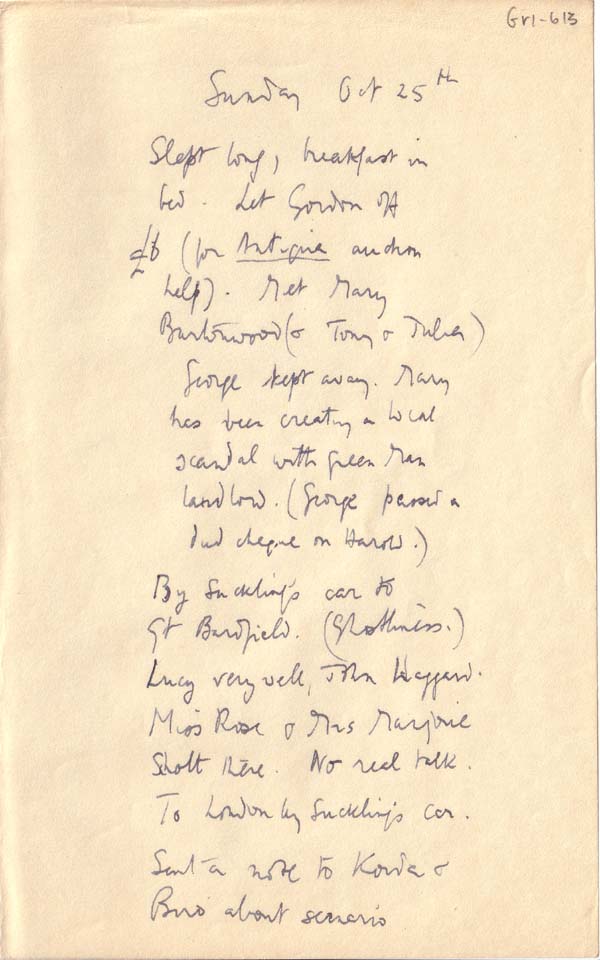 Gr1-613
Sunday Oct 25th
Slept long, breakfast in
bed. Let Gordon off
£6 (for Antigua auction
help). Met Mary
Burtonwood (& Tony & Julia)
George kept away. Mary
has been creating a local
scandal with Green Man
landlord. (George passed a
dud cheque on Harold.)
By Suckling's car to
Gt Bardfield. (Ghastliness.)
Lucy very well, John Haggard.
Miss Rose & Mrs Marjorie
Shott there. No real talk.
To London by Suckling's car.
Sent a note to Korda &
Biro about scenario